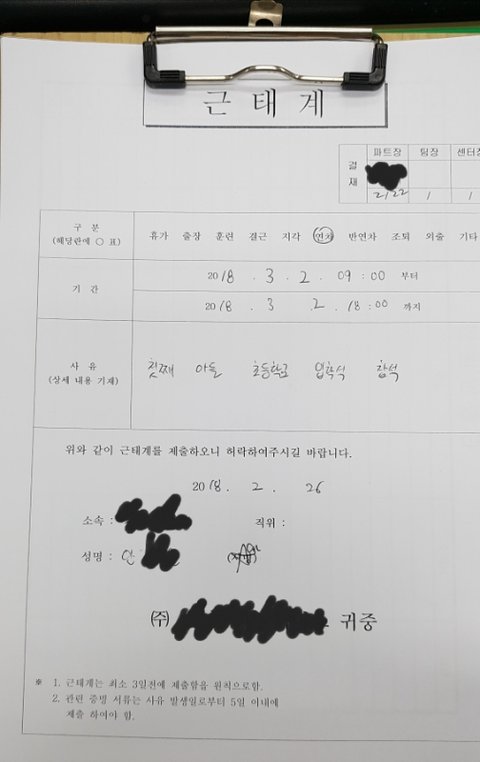 근 태 계
결 재 파트장 팀장 센터장
2/22 / /
구 분 휴가 출장 훈련 결근 지각 연차 반연차 조퇴 외출 기타
(해당란에 ○ 표)
기 간 2018 . 3 . 2 . 09 : 00 부터
2018 . 3 . 2 . 18 : 00 까지
사 유 첫째 아들 초등학교 입학식 참석
(상세 내용 기재)
위와 같이 근태계를 제출하오니 허락하여주시길 바랍니다.
2018 . 2 . 26
소속 : 직위 :
성명 : 안
㈜ 귀중
※ 1. 근태계는 최소 3일전에 제출함을 원칙으로함.
2. 관련 증명 서류는 사유 발생일로부터 5일 이내에
제출 하여야 함.